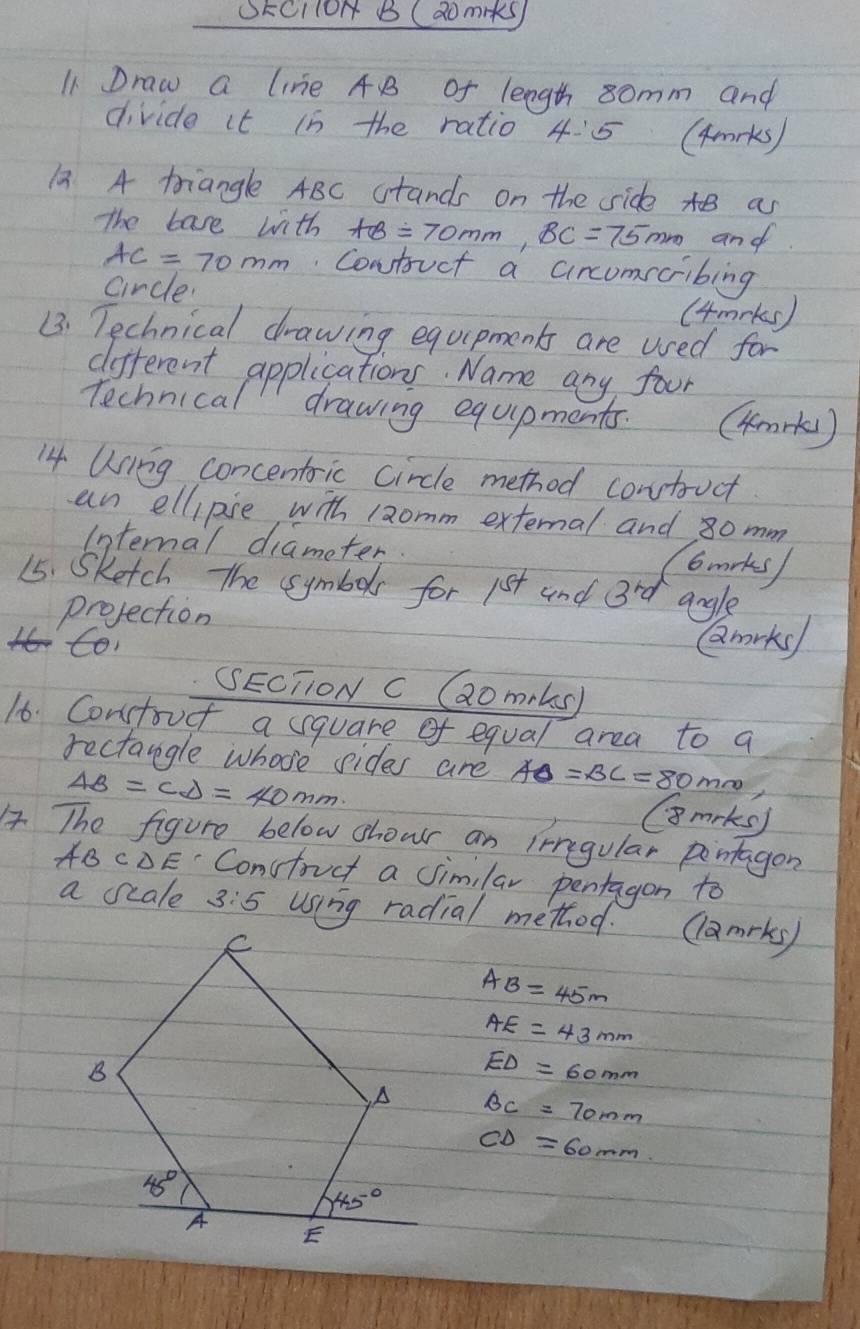 SECTION B (20 mrks)
11. Draw a line AB of length 80mm and
divide it in the ratio 4:5 (4mrks)
12 A triangle ABC stands on the side AB as
the base with AB = 70mm, BC = 75mm and
AC = 70mm. Construct a circumscribing
circle. (4mrks)
13. Technical drawing equipments are used for
different applications. Name any four
Technical drawing equipments. (4mrks)
14. Using concentric circle method construct
an ellipse with 120mm external and 80mm
Internal diameter. (6mrks)
15. Sketch the symbols for 1st and 3rd angle
projection (2mrks)
16 Co.
SECTION C (20 mrks)
16. Construct a square of equal area to a
rectangle whose sides are AD = BC = 80mm,
AB = CD = 40mm. (8mrks)
17. The figure below shows an irregular pentagon
ABCDE. Construct a similar pentagon to
a scale 3:5 using radial method. (12mrks)
C
AB = 45m
AE = 43mm
ED = 60mm
B
D
BC = 70mm
CD = 60mm.
45°
45°
A
E